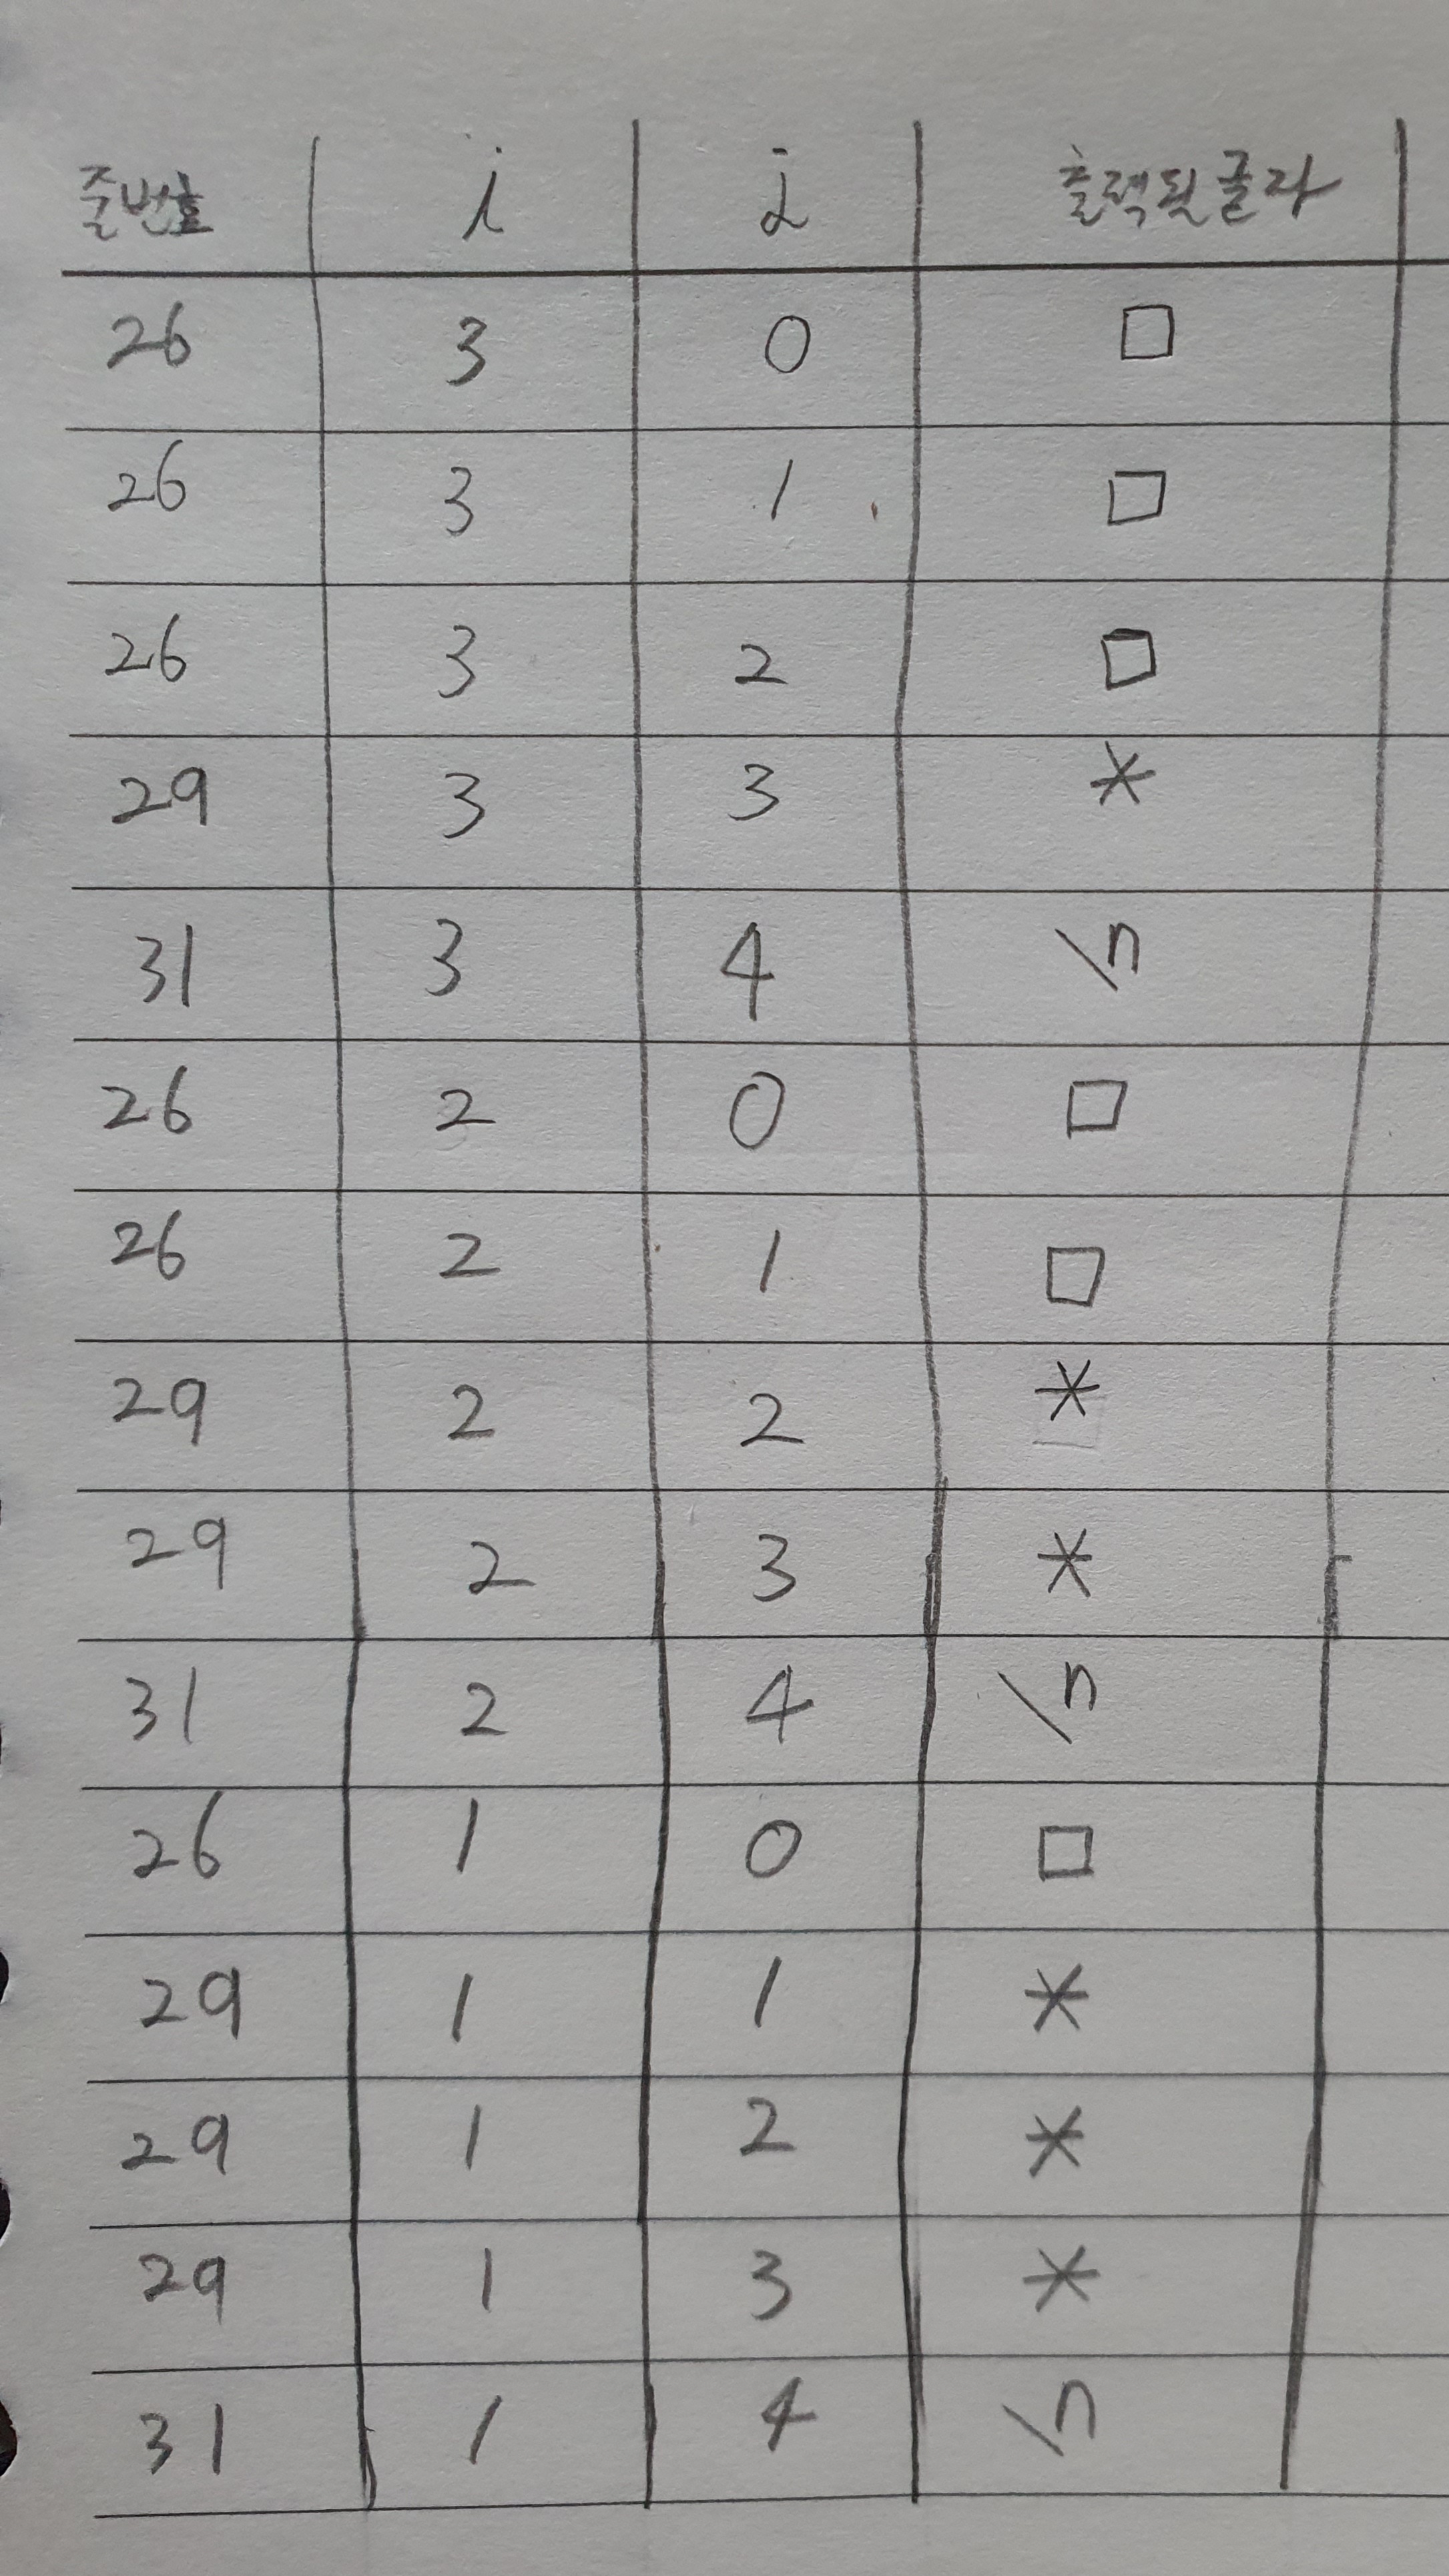 줄번호 i j 출력된글자
26 3 0 □
26 3 1 □
26 3 2 □
29 3 3 *
31 3 4 \n
26 2 0 □
26 2 1 □
29 2 2 *
29 2 3 *
31 2 4 \n
26 1 0 □
29 1 1 *
29 1 2 *
29 1 3 *
31 1 4 \n